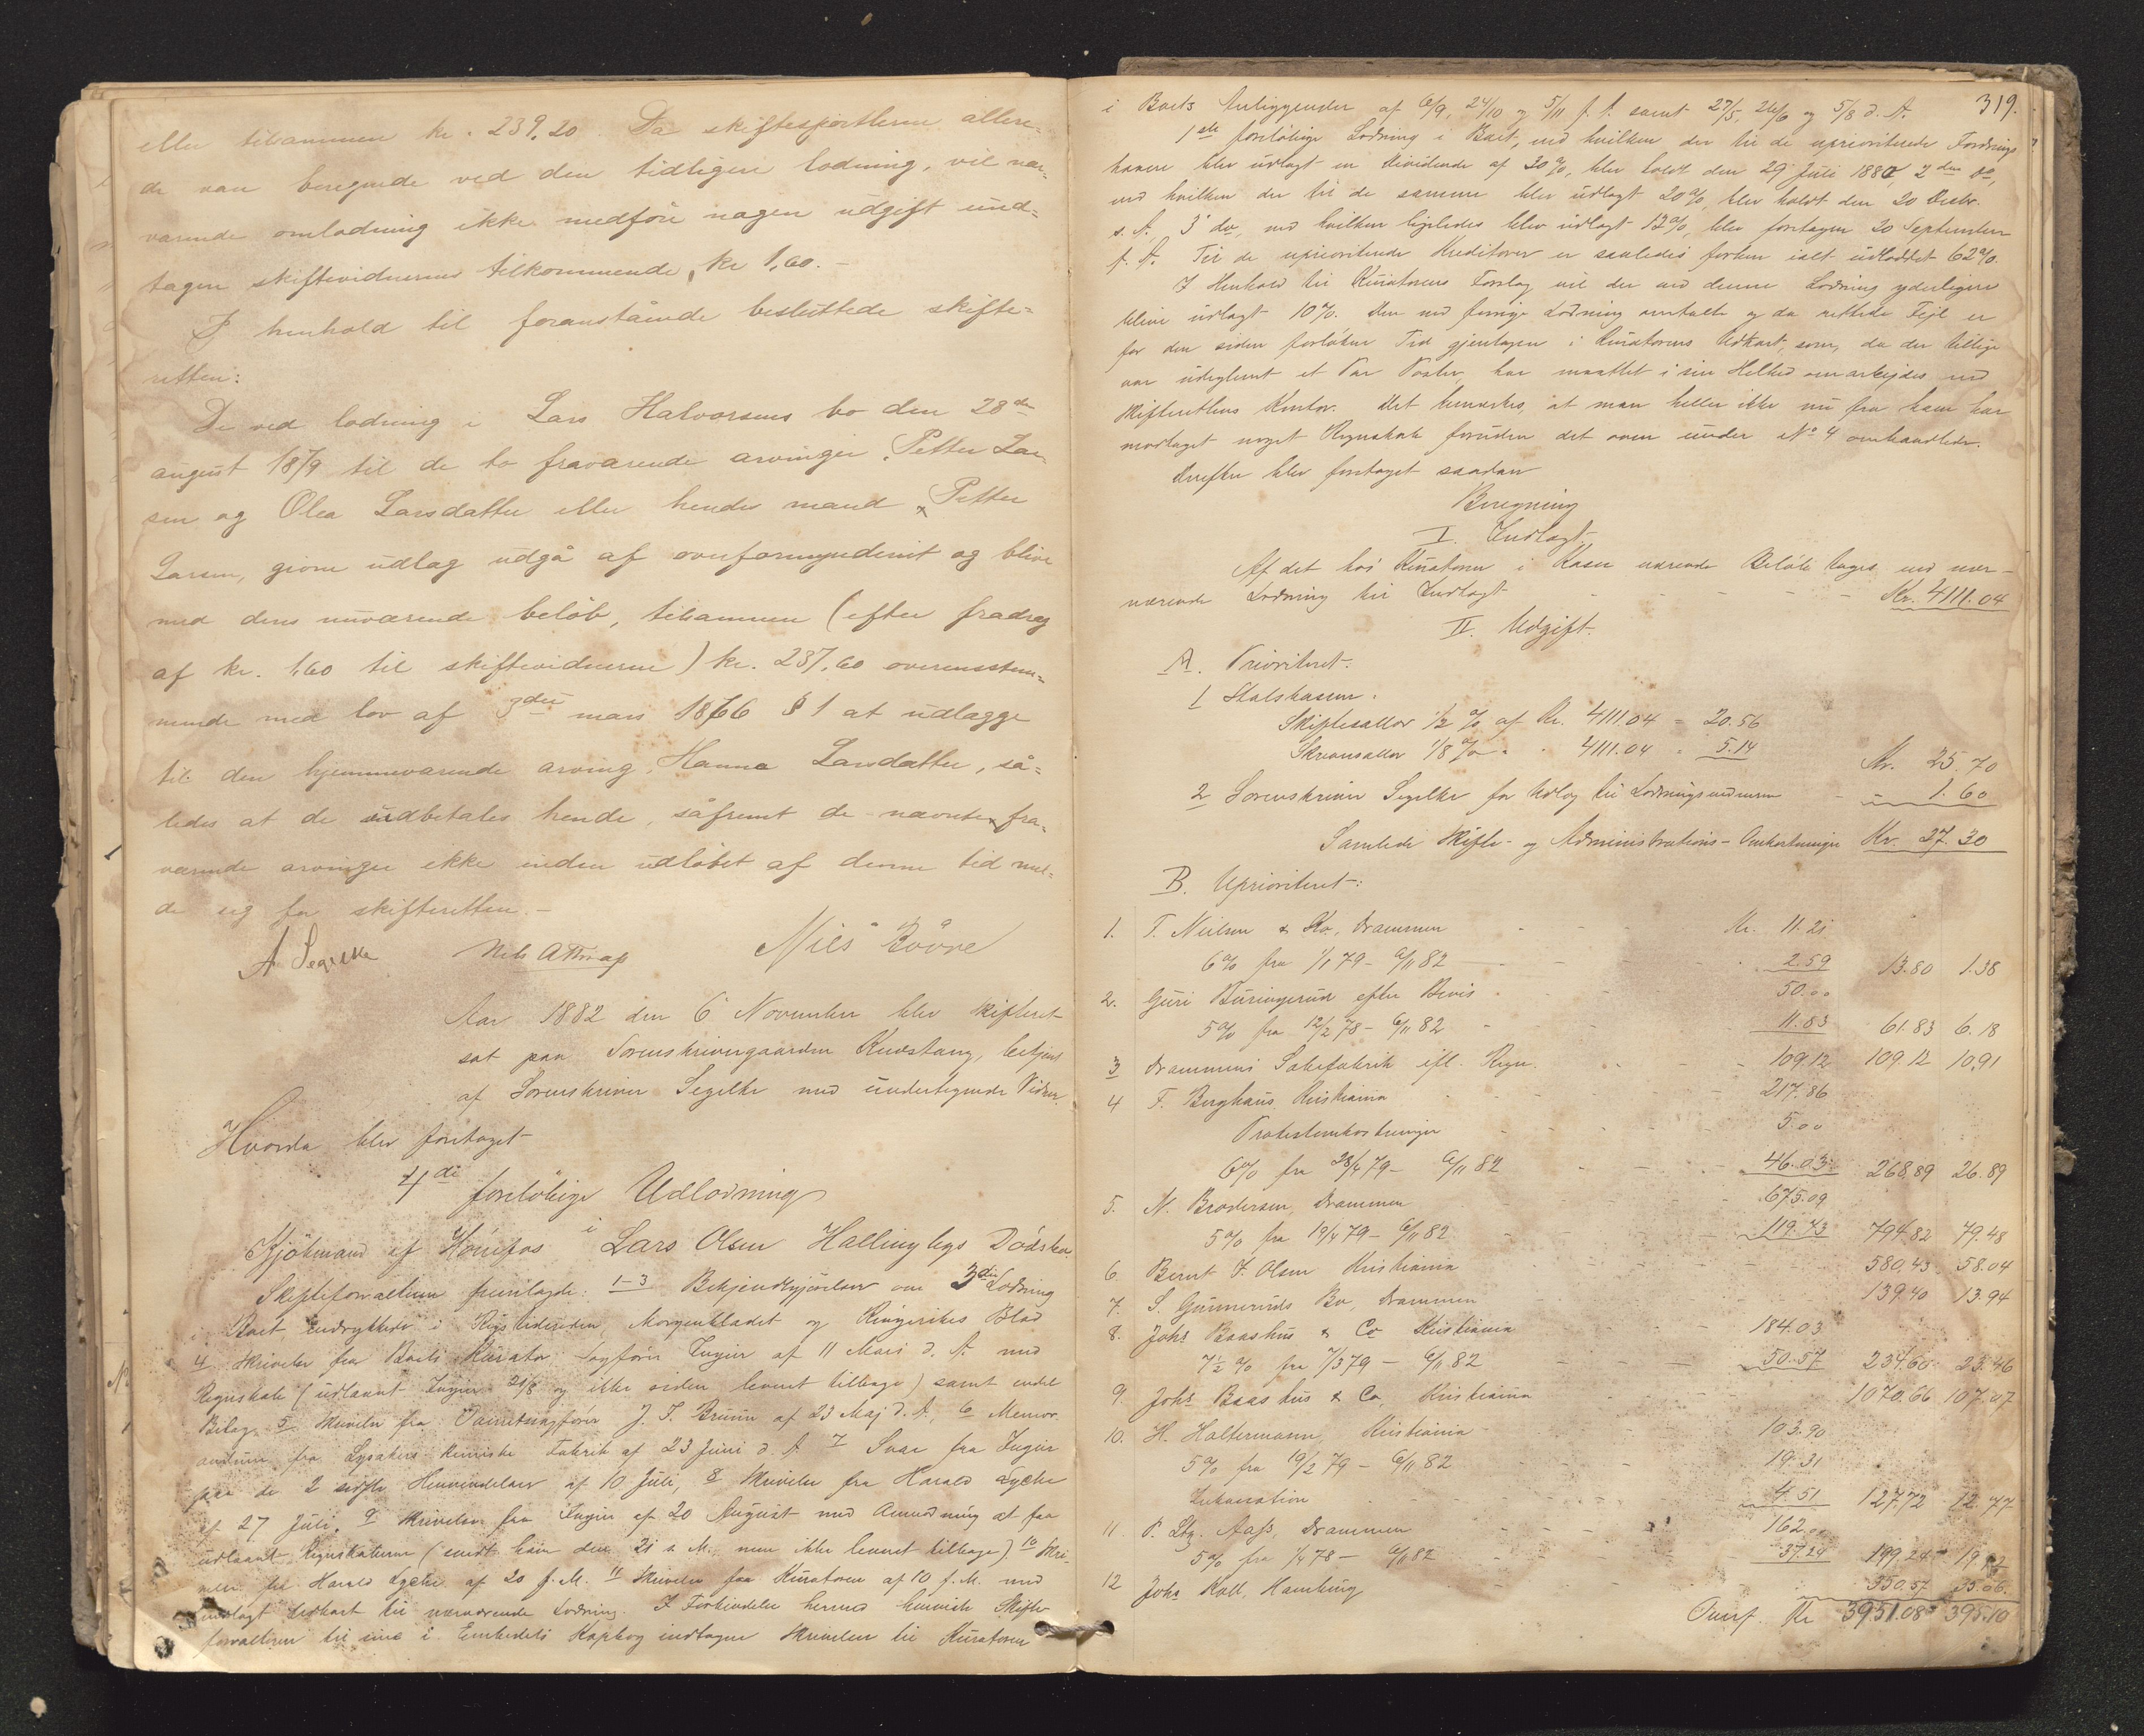 eller tilsammen kr. 239,20. Da skiftesportlerne allere-
de var beregnede ved den tidligere lodning, vil nær-
værende omlodning ikke medføre nogen udgift und-
tagen skiftevidnernes tilkommende, kr 1,60. -
I henhold til foranstående besluttede skifte-
retten:
De ved lodning i Lars Halvorsens bo den 28de
august 1879 til de to fraværende arvinger, Petter Lar-
sen og Olea Larsdatter eller hendes mand, Petter
Larsen, gjorte udlæg udgå af overformynderiet og blive
med deres nuværende beløb, tilsammen (efter fradrag
af kr. 1,60 til skiftevidnerne) kr. 237,60 overensstem-
mende med lov af 3die mars 1866 § 1 at udlægge
til den hjemmeværende arving, Hanna Larsdatter, så-
ledes at de udbetales hende, såfremt de nævnte fra-
værende arvinger ikke inden udløbet af denne tid mel-
de sig for skifteretten. -
A Segelcke Nils Attrap Nils Bövre
Aar 1882 den 6 November blev Skifteret
sat paa Sorenskrivergaarden Kudstang, betjent
af Sorenskriver Segelke med undertegnede Vidner.
Hvorda blev foretaget
4de foreløbige Udlodning
i
Kjøbmand af Hönefos Lars Olsen Hallingbys Dödsbo.
Skifteforvalteren fremlagde: 1-3 Bekjendtgjörelser om 3die Lodning
i Boet indrykkede i Rigstidenden, Morgenbladet og Ringerikes Blad
4 Skrivelse fra Boets Kurator Sagförer Ingier af 11 Mars d. A. med
Regnskab (udlaant Ingier 21/8 og ikke siden leveret tilbage) samt endel
Bilag, 5 Skrivelse fra Overretssagförer J. F. Bruun af 23 Maj d. A., 6 Memor-
andum fra Lysakers kemiske Fabrik af 23 Juni d. A. 7 Svar fra Ingier
paa de 2 sidste Henvendelser af 10 Juli, 8 Skrivelse fra Harald Lyche
af 27 Juli, 9 Skrivelse fra Ingier af 20 August med Anmodning at faa
udlaant Regnskaberne (sendt ham den 21 s. M. men ikke leveret tilbage), 10 Skri-
velse fra Harald Lyche af 20 f. M. 11 Skrivelse fra Kuratoren af 10 f. M. med
indlagt Udkast til nærværende Lodning. I Forbindelse hermed henviste Skifte-
forvalteren til sine i Embedets Kopibog indtagne Skrivelser til Kuratoren
319.
i Boets Anliggender af 6/9, 24/10 og 5/11 f. A. samt 27/5, 26/6 og 5/8 d. A.
1ste foreløbige Lodning i Boet, ved hvilken der til de uprioriterede Fordrings-
havere blev udlagt en Dividende af 30 %, blev holdt den 29 Juli 1880, 2den do,
ved hvilken der til de samme blev udlagt 20 %, blev holdt den 20 Decbr.
s. A. 3 do, ved hvilken ligeledes blev udlagt 12 %, blev foretagen 20 September
f. A. Til de uprioriterede Kreditorer er saaledes forhen ialt udloddet 62 %.
I Henhold til Kuratorens Forslag vil der ved denne Lodning yderligere
blive udlagt 10 %. Den ved forrige Lodning omtalte og da rettede Fejl er
for den siden forløbne Tid gjentagen i Kuratorens Udkast, som, da der tillige
var udeglemt et Par Poster, har maattet i sin Helhed omarbejdes ved
Skifterettens Kontor. Det bemærkes, at man heller ikke nu fra ham har
modtaget noget Regnskab foruden det oven under No 4 omhandlede.
Derefter blev foretaget saadan
Beregning
I. Indtægt.
Af det hos Kuratoren i Kasse værende Beløb tages ved nær-
værende Lodning til Indtægt Kr. 4111.04
II. Udgift.
A. Prioriteret.
1 Statskassen.
Skiftesallær 1/2 % af Kr. 4111.04 = 20.56
Skriversallær 1/8 % " " 4111.04 " 5.14 Kr. 25.70
2 Sorenskriver Segelke for Udlæg til Lodningsvidnerne - " 1.60
Samlede Skifte- og Administrations-Omkostninger Kr. 27.30
B. Uprioriteret:
1. T. Nielsen & Ko, Drammen Kr. 11.21
6 % fra 1/1 79 - 6/11 82 2.59 13.80 1.38
2. Guri Buringerud efter Bevis 50.00
5 % fra 12/2 78 - 6/11 82 11.83 61.83 6.18
3 Drammens Sæbefabrik ifl. Regn. 109.12 109.12 10.91
4 F. Berghaus, Kristiania 217.86
Protestomkostninger 5.00
6 % fra 28/4 79 - 6/11 82 46.03 268.89 26.89
5. N. Brodersen, Drammen 675.09
5 % fra 19/4 79 - 6/11 82 119.73 794.82 79.48
6. Bernt F. Olsen Kristiania 580.43 58.04
7. S. Gunneruds Bo, Drammen 139.40 13.94
8. Johs Baashus & Co Kristiania 184.03
7 1/2 % fra 7/3 79 - 6/11 82 50.57 234.60 23.46
9. Johs Baashus & Co, Kristiania 1070.66 107.07
10. H. Haltermann, Kristiania 103.90
5 % fra 19/2 79 - 6/11 82 19.31
Inkassation 4.51 127.72 12.77
11. P. Ltz. Aass, Drammen 162.00
5 % fra 1/4 78 - 6/11 82 37.24 199.24 19.92
12 Johs Koll, Hamburg 350.57 35.06
Transp. Kr 3951.08 395.10